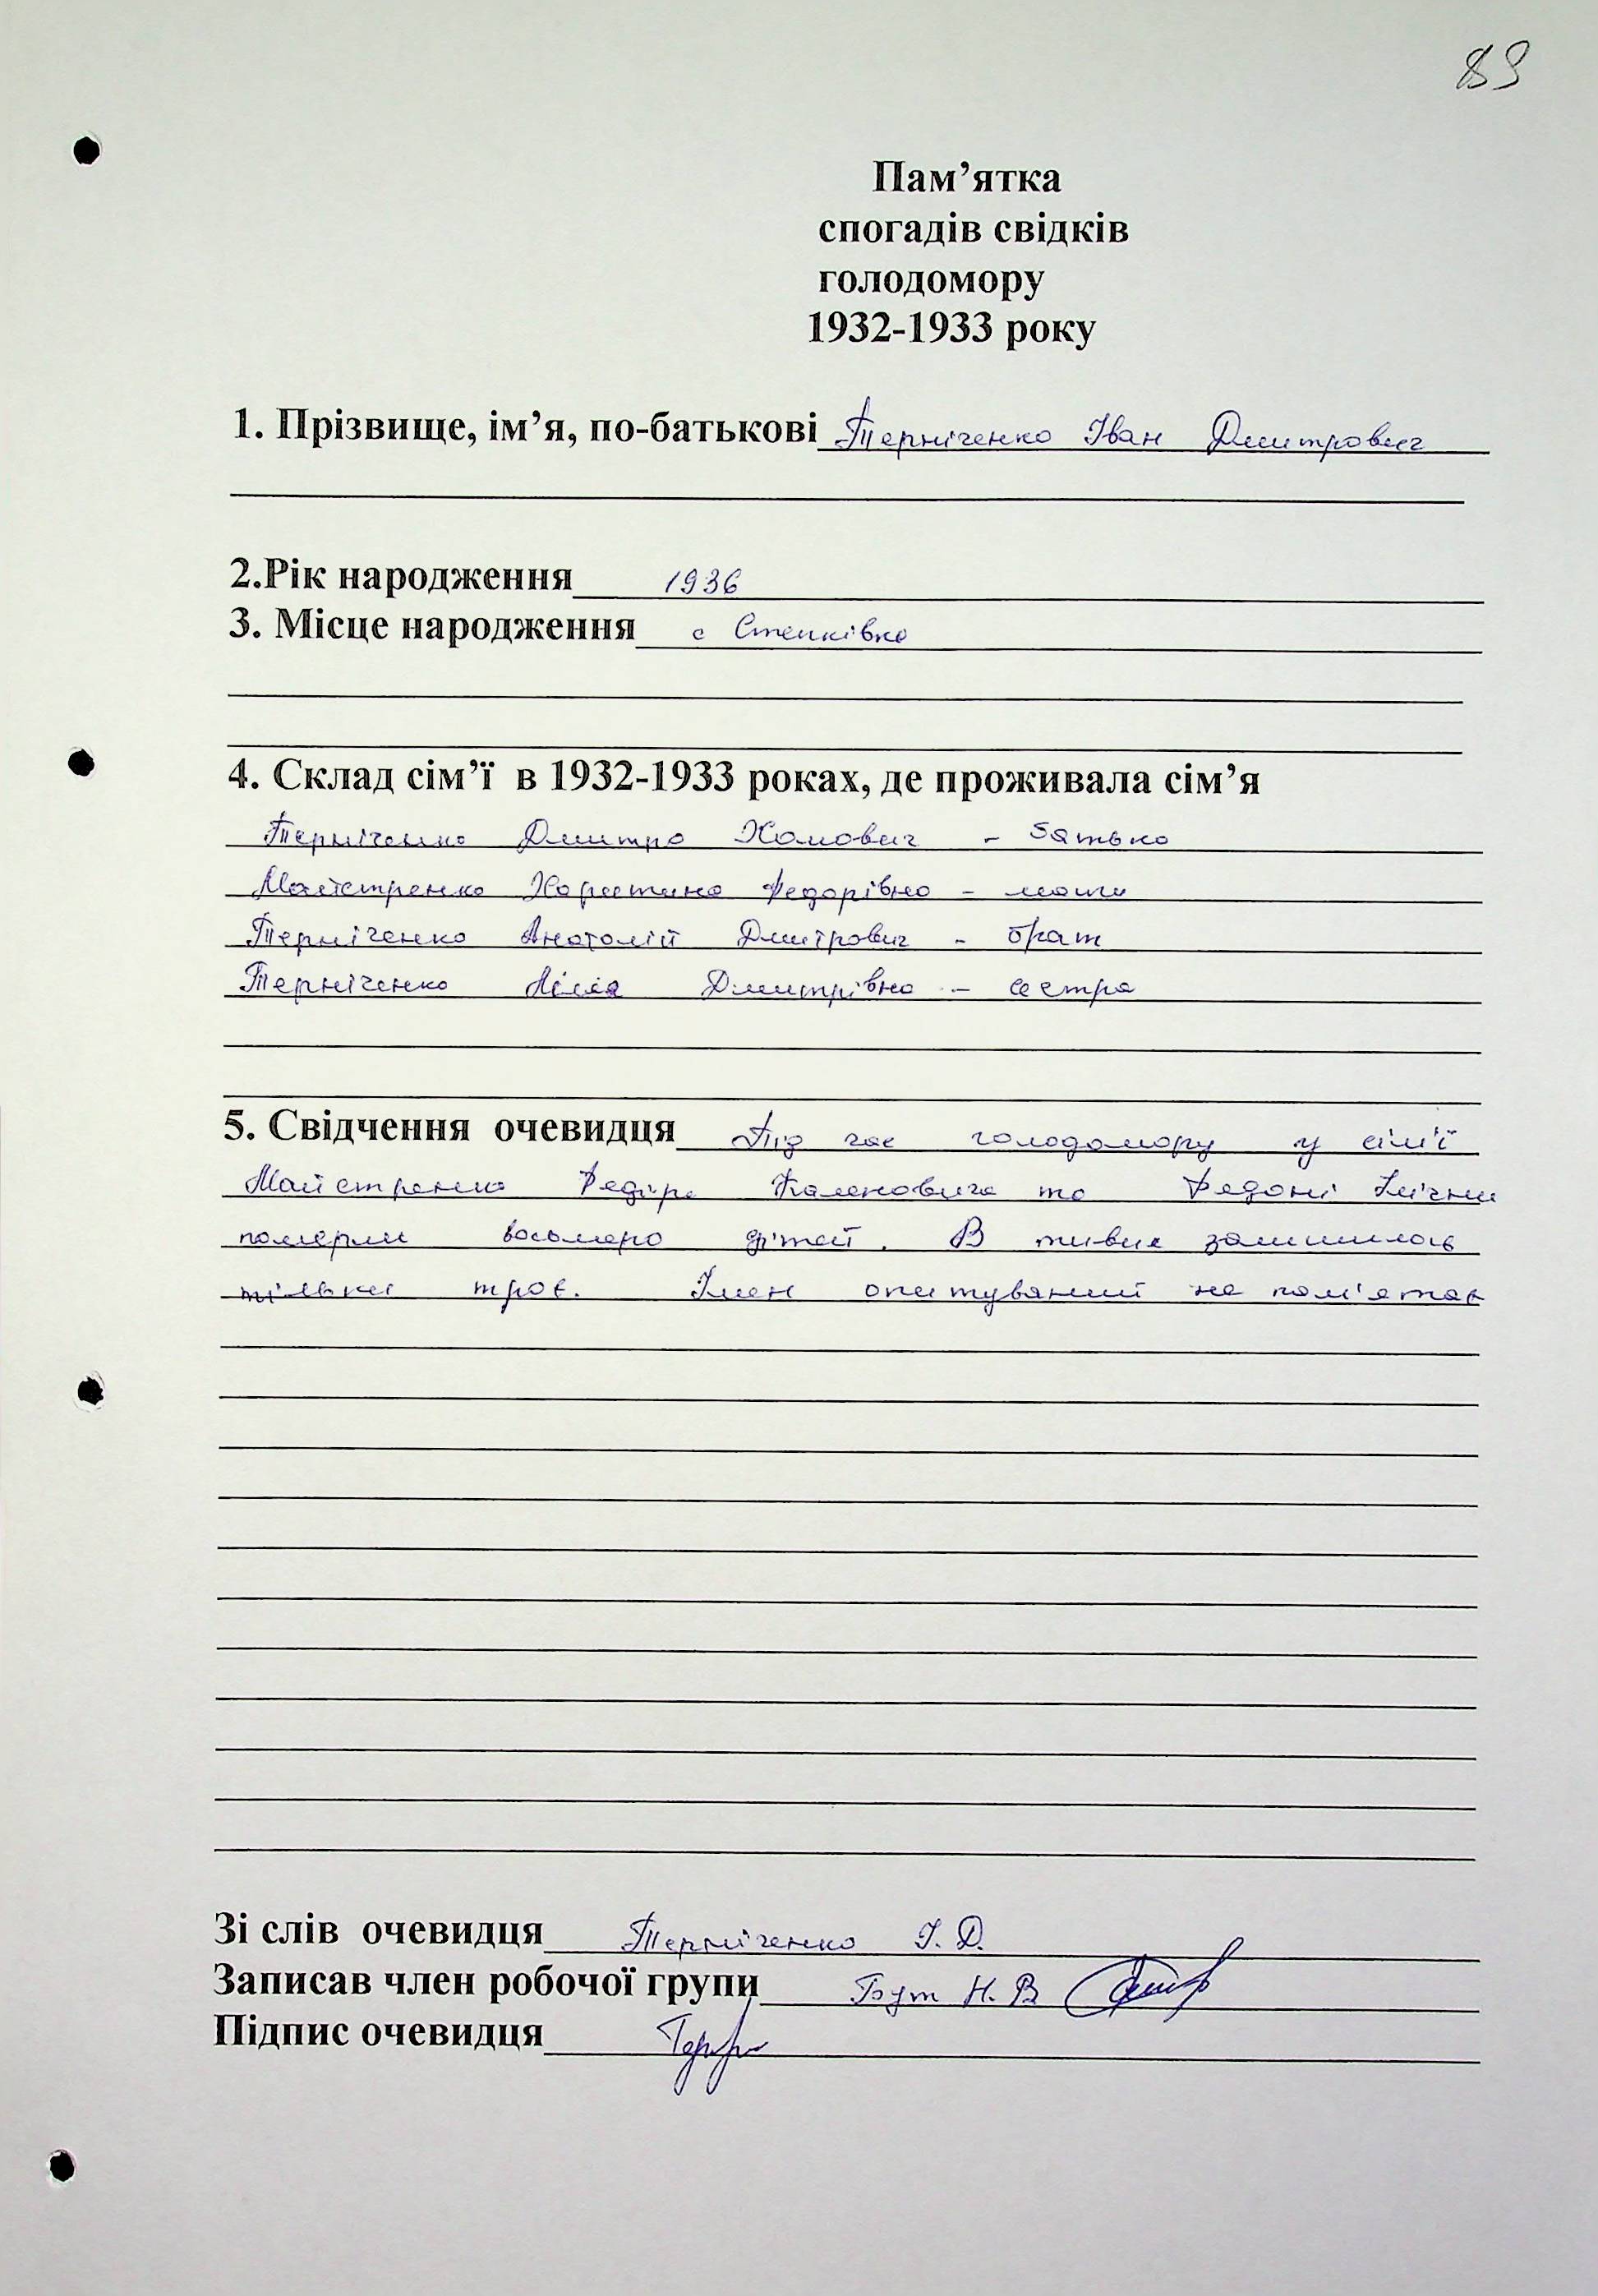 89
Пам’ятка
спогадів свідків
голодомору
1932-1933 року
1. Прізвище, ім’я, по-батькові Терніченко Іван Дмитрович
2.Рік народження 1936
3. Місце народження с Степківка
4. Склад сім’ї в 1932-1933 роках, де проживала сім’я
Терніченко Дмитро Хомович - батько
Майстренко Харитина Федорівна - мати
Терніченко Анатолій Дмитрович - брат
Терніченко Лілія Дмитрівна - сестра
5. Свідчення очевидця Під час голодомору у сім'ї
Майстренка Федора Каленовича та Федоні
померли восьмеро дітей. В живих залишилось
тільки троє. Імен опитуваний не пам'ятає
Зі слів очевидця Терніченко І. Д.
Записав член робочої групи Бут Н. В
Підпис очевидця